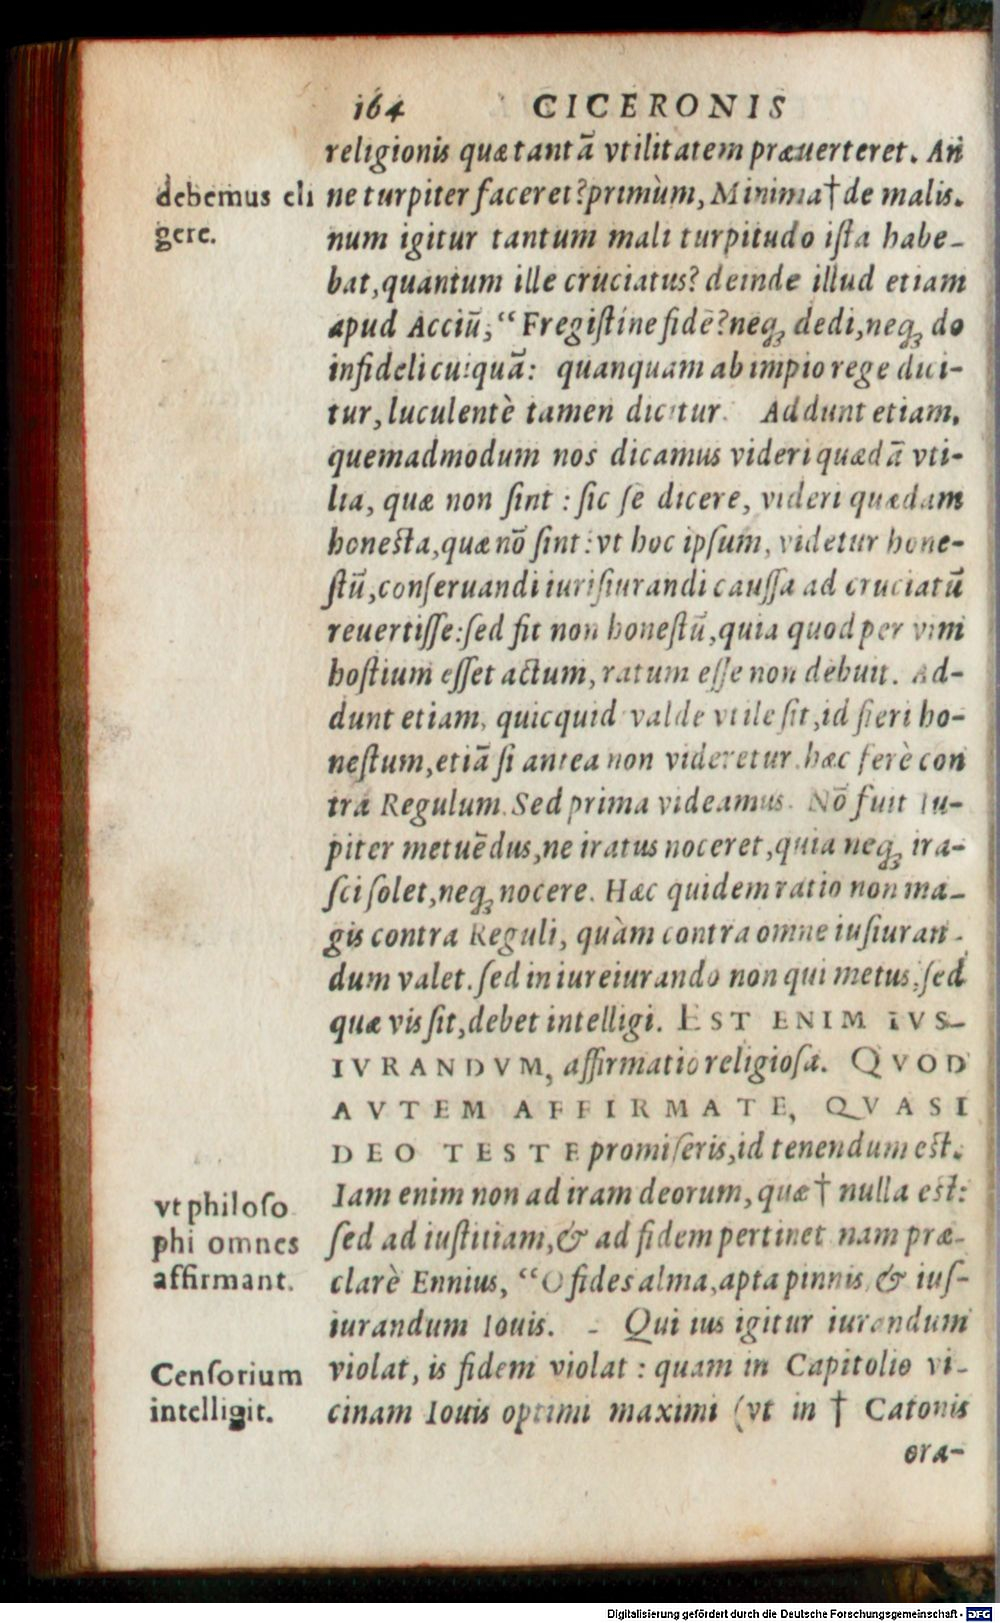 164 CICERONIS
religionis quæ tantã vtilitatem præuerteret. An
debemus eli
gere.
ne turpiter faceret? primùm, Minima † de malis.
num igitur tantum mali turpitudo iſta habe-
bat, quantum ille cruciatus? deinde illud etiam
apud Acciũ, “Fregiſtine fidẽ? neq; dedi, neq; do
infideli cuiquã: quanquam ab impio rege dici-
tur, luculentè tamen dicitur. Addunt etiam,
quemadmodum nos dicamus videri quædã vti-
lia, quæ non ſint: ſic ſe dicere, videri quædam
honeſta, quæ nõ ſint: vt hoc ipſum, videtur hone-
ſtũ, conſeruandi iuriſiurandi cauſſa ad cruciatũ
reuertiſſe: ſed fit non honeſtũ, quia quod per vim
hoſtium eſſet actum, ratum eſſe non debuit. Ad-
dunt etiam, quicquid valde vtile ſit, id fieri ho-
neſtum, etiã ſi antea non videretur. hæc ferè con
tra Regulum. Sed prima videamus. Nõ fuit Iu-
piter metuẽdus, ne iratus noceret, quia neq; ira-
ſci ſolet, neq; nocere. Hæc quidem ratio non ma-
gis contra Reguli, quàm contra omne iuſiuran-
dum valet. ſed in iureiurando non qui metus, ſed
quæ vis ſit, debet intelligi. EST ENIM IVS-
IVRANDVM, affirmatio religioſa. QVOD
AVTEM AFFIRMATE, QVASI
DEO TESTE promiſeris, id tenendum eſt.
Iam enim non ad iram deorum, quæ † nulla eſt:
vt philoſo
phi omnes
affirmant.
ſed ad iuſtitiam, & ad fidem pertinet. nam præ-
clarè Ennius, “O fides alma, apta pinnis, & iuſ-
iurandum Iouis. - Qui ius igitur iurandum
violat, is fidem violat: quam in Capitolio vi-
Cenſorium
intelligit.
cinam Iouis optimi maximi (vt in † Catonis
ora-
Digitalisierung gefördert durch die Deutsche Forschungsgemeinschaft - DFG